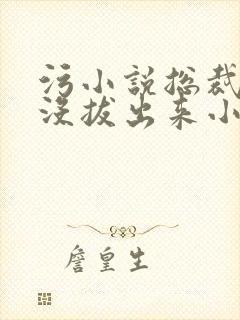 污小说总裁
没拔出来小
詹皇生